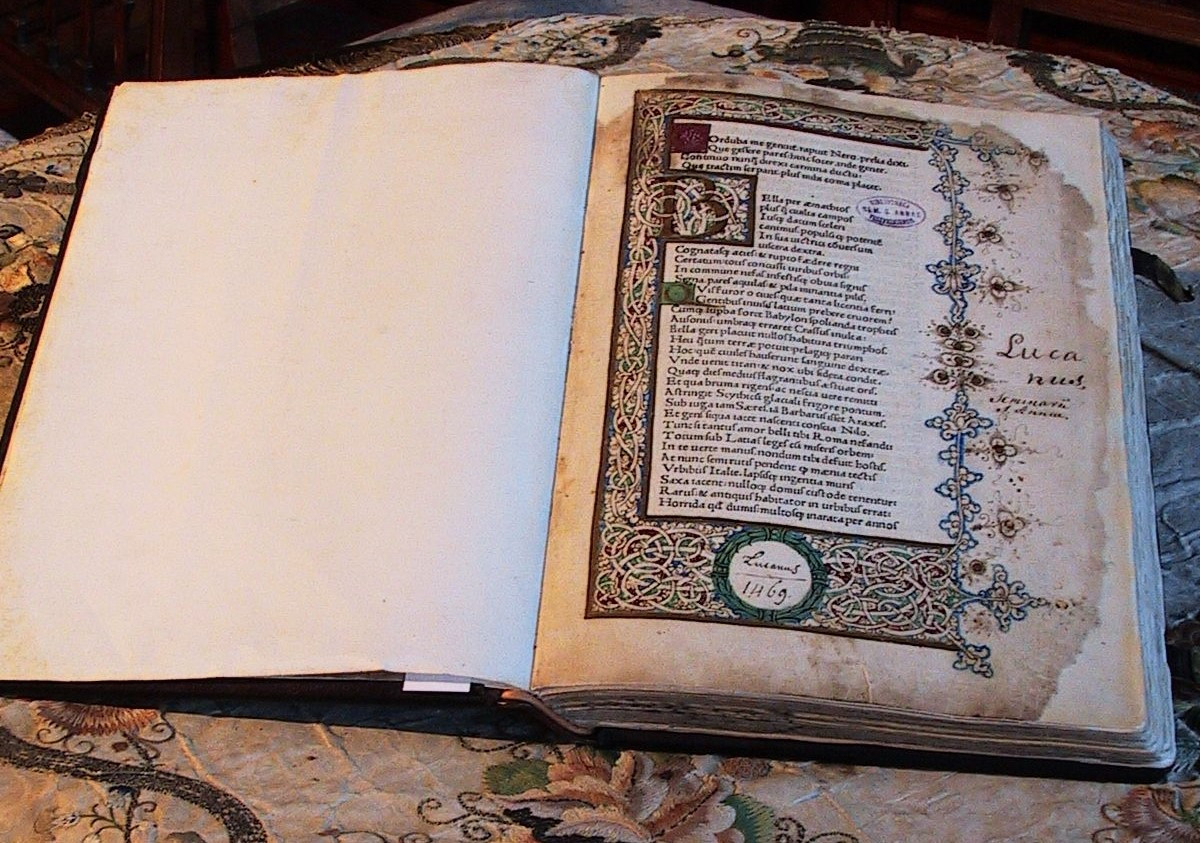 Corduba me genuit. rapuit Nero. prelia dixi.
Que gessere pares hinc socer. inde gener.
Continuo nunq̃ direxi carmina ductu:
Que tractim serpant. plus mihi coma placet.
Bella per æmathios
plus q̃ ciuilia campos
Iusq; datum sceleri
canimus. populũq; potentẽ
In sua uictrici cõuersum
uiscera dextra.
Cognatasq; acies: & rupto fædere regni
Certatum totis concussi uiribus orbis:
In commune nefas. infestisq; obuia signis
Signa. pares aquilas: & pila minantia pilis.
Vis furor o ciues: quæ tanta licentia ferri:
Gentibus inuisis latium prebere cruorem?
Cumq; supba foret Babylon spolianda tropheis
Ausoniis: umbraq; erraret Crassus inulta:
Bella geri placuit nullos habitura triumphos.
Heu q̃tum terræ potuit: pelagiq; parari
Hoc: quẽ ciuiles hauserunt sanguine dextræ.
Vnde uenit titan: & nox ubi sidera condit.
Quaq; dies medius flagrantibus æstuat oris.
Et qua bruma rigens: ac nescia uere remitti
Astringit Scythico glaciali frigore pontum.
Sub iuga iam Særes. iã Barbarus isset Araxes.
Et gens siqua iacet nascenti conscia Nilo.
Tunc si tantus amor belli tibi Roma nefandi
Totum sub Latias leges cũ miseris orbem
In te uerte manus. nondum tibi defuit hostis.
At nunc semirutis pendent q̃ mænia tectis
Vrbibus Italiæ. lapsisq; ingentia muris
Saxa iacent: nulloq; domus custode tenentur:
Rarus: & antiquis habitator in urbibus errat:
Horrida qđ dumis: multosq; inarata per annos
BIBLIOTHECA
SEM. S. ANNAE
Luca
nus.
Seminarii
S. Annae.
Lucanus
1469.